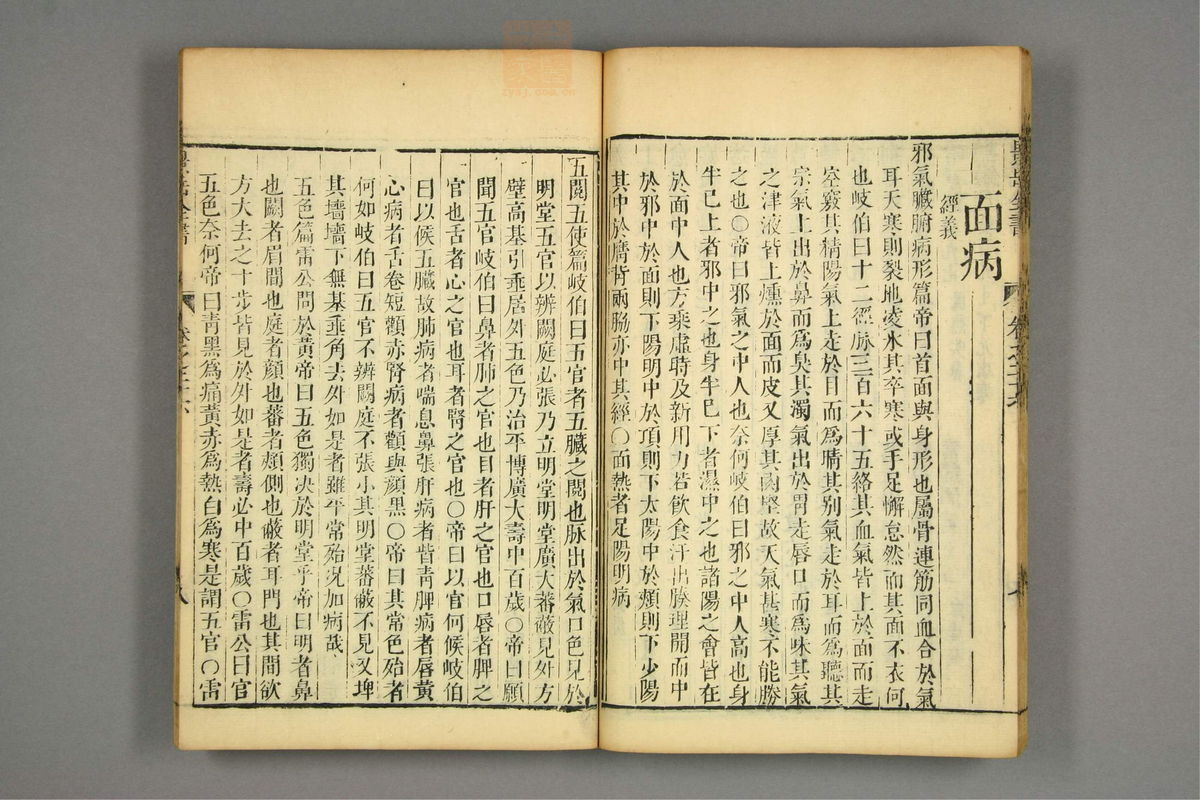 面病
經義
邪氣臟腑病形篇帝曰首面與身形也屬骨連筋同血合於氣
耳天寒則裂地凌氷其卒寒或手足懈怠然而其面不衣何
也岐伯曰十二經脉三百六十五絡其血氣皆上於面而走
空竅其精陽氣上走於目而爲睛其别氣走於耳而爲聽其
宗氣上出於鼻而爲臭其濁氣出於胃走唇口而爲味其氣
之津液皆上燻於面而皮又厚其肉堅故天氣甚寒不能勝
之也〇帝曰邪氣之中人也奈何岐伯曰邪之中人高也身
半已上者邪中之也身半已下者濕中之也諸陽之會皆在
於面中人也方乗虛時及新用力若飲食汗出腠理開而中
於邪中於面則下陽明中於項則下太陽中於頰則下少陽
其中於膺背兩脇亦中其經〇面熱者足陽明病
五閱五使篇岐伯曰五官者五臟之閱也脉出於氣口色見於
明堂五官以辨闕庭必張乃立明堂明堂廣大蕃蔽見外方
壁高基引垂居外五色乃治平博廣大壽中百歲〇帝曰願
聞五官岐伯曰鼻者肺之官也目者肝之官也口唇者脾之
官也舌者心之官也耳者腎之官也〇帝曰以官何候岐伯
曰以候五臟故肺病者喘息鼻張肝病者眥青脾病者唇黄
心病者舌卷短顴赤腎病者顴與顔黑〇帝曰其常色殆者
何如岐伯曰五官不辨闕庭不張小其明堂蕃蔽不見又埤
其墻墻下無基垂角去外如是者雖平常殆况加病哉
五色篇雷公問於黄帝曰五色獨决於明堂乎帝曰明者鼻
也闕者眉間也庭者顔也蕃者頰側也蔽者耳門也其間欲
方大去之十步皆見於外如是者壽必中百歲〇雷公曰官
五色奈何帝曰青黑爲痛黄赤爲熱白爲寒是謂五官〇雷